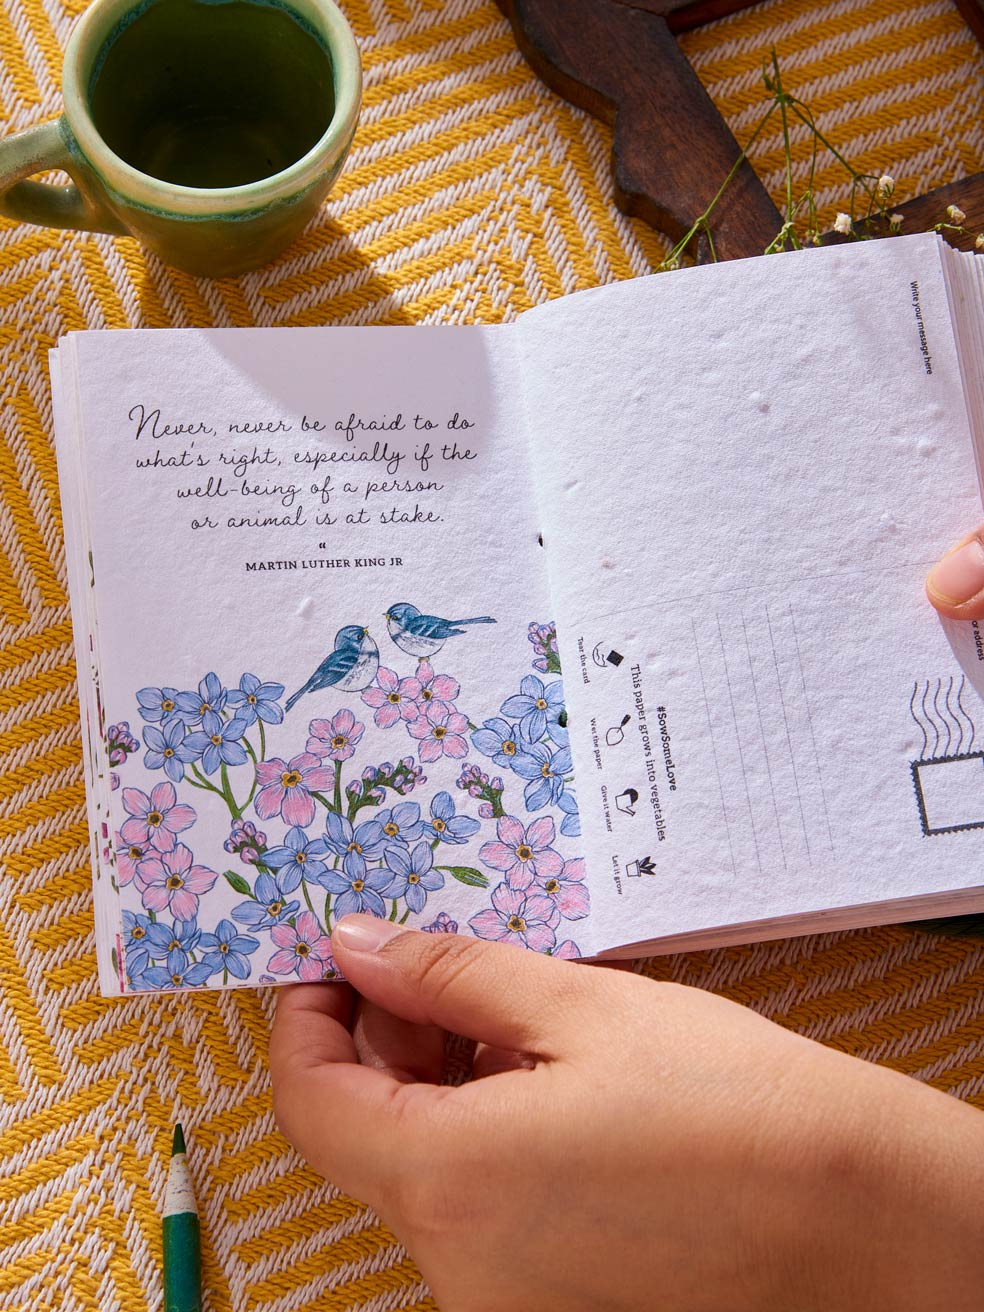 Never, never be afraid to do
what's right, especially if the
well-being of a person
or animal is at stake.
“
MARTIN LUTHER KING JR
Write your message here
#SowSomeLove
This paper grows into vegetables
Tear the card
Wet the paper
Give it water
Let it grow
or address